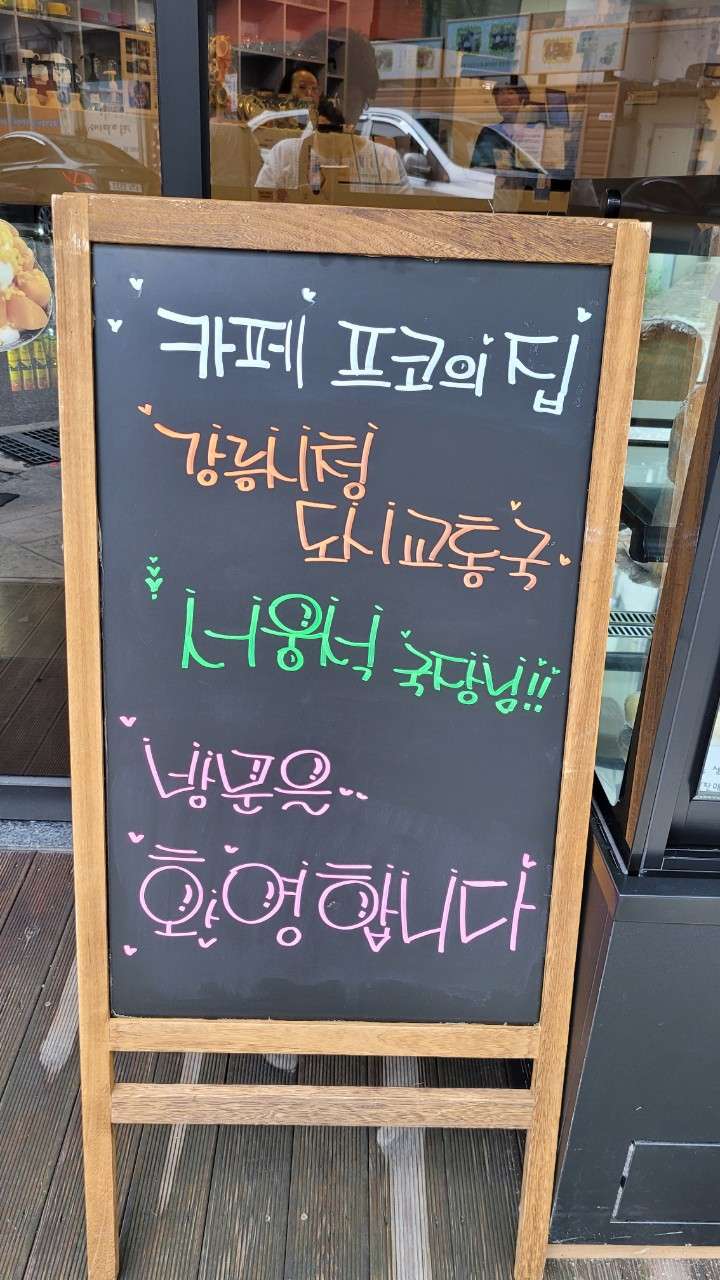 카페 프코의 집
강릉시청
도시교통국
서용석 국장님!!
방문을..
환영합니다